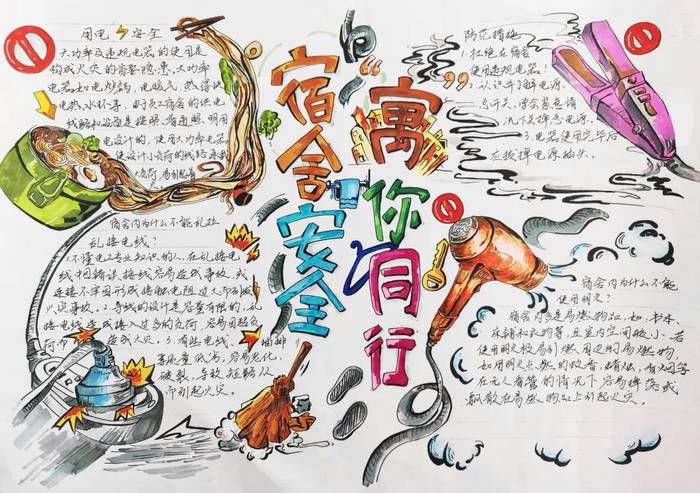 用电⚡安全
大功率及违规电器的使用是
构成火灾的首要隐患,大功率
电器如:电炒锅、电暖气、热得快
电热水杯等。由于员工宿舍的供电
线路和设备是按照普通照明用
电设计的,使用大功率电器
使设计小负荷的线路
负荷
宿舍内为什么不能乱拉
乱接电线?
1.不懂电工专业知识的人,在乱接电
线中因错误接线容易造成事故,或
连接不牢固形成接触电阻过大
火灾事故。2.导线的设计是容量有限的,乱
接电线造成接入过多的负荷,容易因超负
荷而造成火灾。3.有些电线、插排
等质量低劣,容易老化
破裂,导致短路从
而引起火灾。
宿舍安全
“寓”
你同行
防范措施
1.拒绝在宿舍
使用违规电器。
2.认识并了解电源
总开关,学会紧急情
况下关掉总电源。
3.电器使用完毕后
应拔掉电源插头。
宿舍内为什么不能
使用明火?
宿舍内多是易燃物品,如:书本、
床铺和衣物等,且室内空间较小,若
使用明火极易引燃周边的易燃物,
如用明火点燃的蚊香、蜡烛、有烟囱等
在无人看管的情况下容易掉落或
飘散在易燃物上引起火灾。